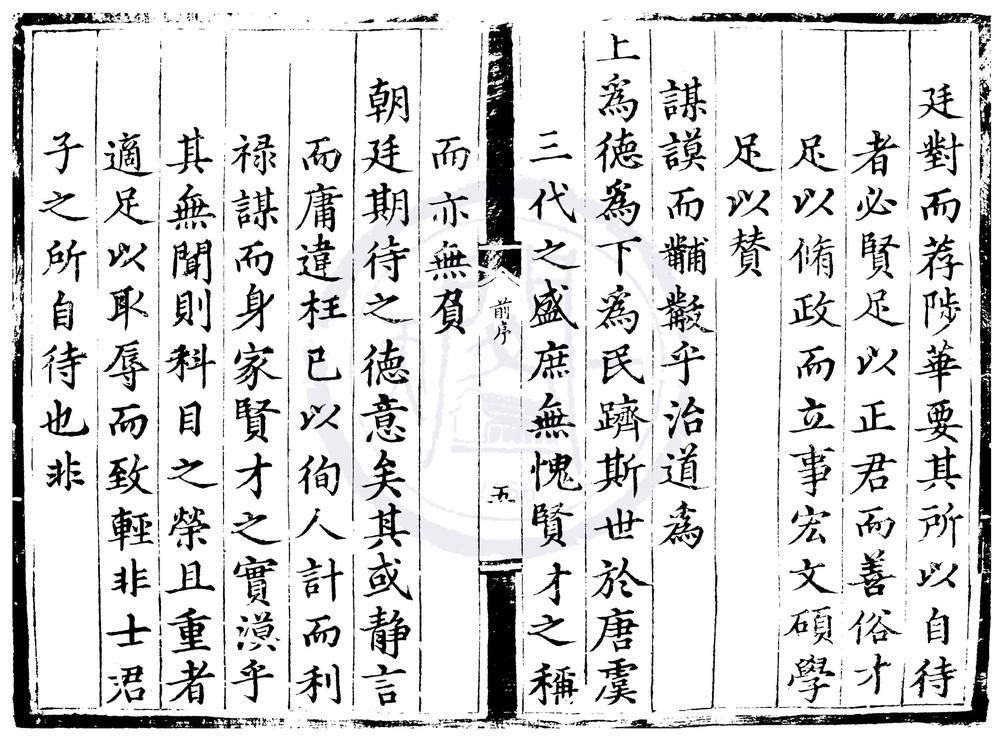 廷對而荐陟華要其所以自待
者必賢足以正君而善俗才
足以脩政而立事宏文碩學
足以賛
謀謨而黼黻乎治道為
上為德為下為民躋斯世於唐虞
三代之盛庶無愧賢才之稱
前序
五
而亦無負
朝廷期待之德意矣其或静言
而庸違枉已以徇人計而利
禄謀而身家賢才之實漠乎
其無聞則科目之榮且重者
適足以取辱而致輕非士君
子之所自待也非